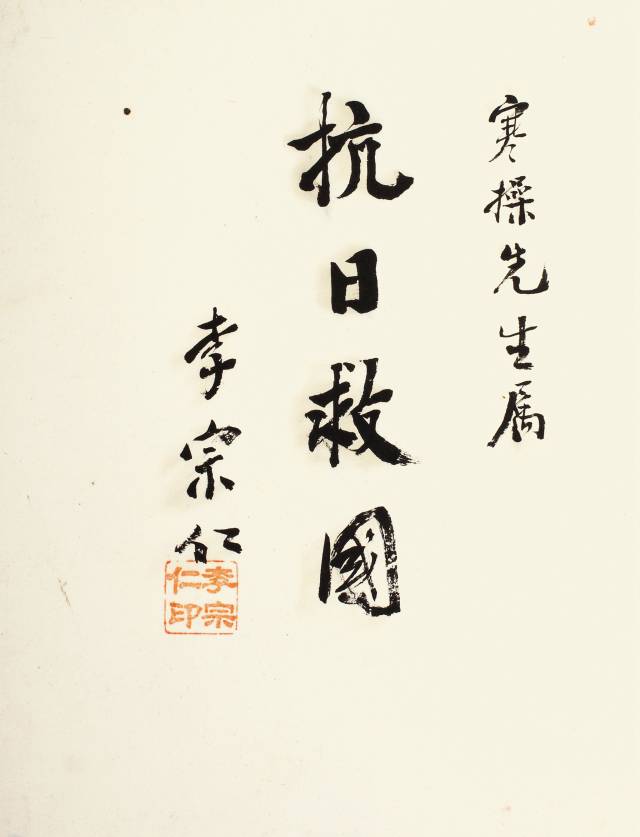 寒操先生属
抗日救國
李宗仁
李宗
仁印